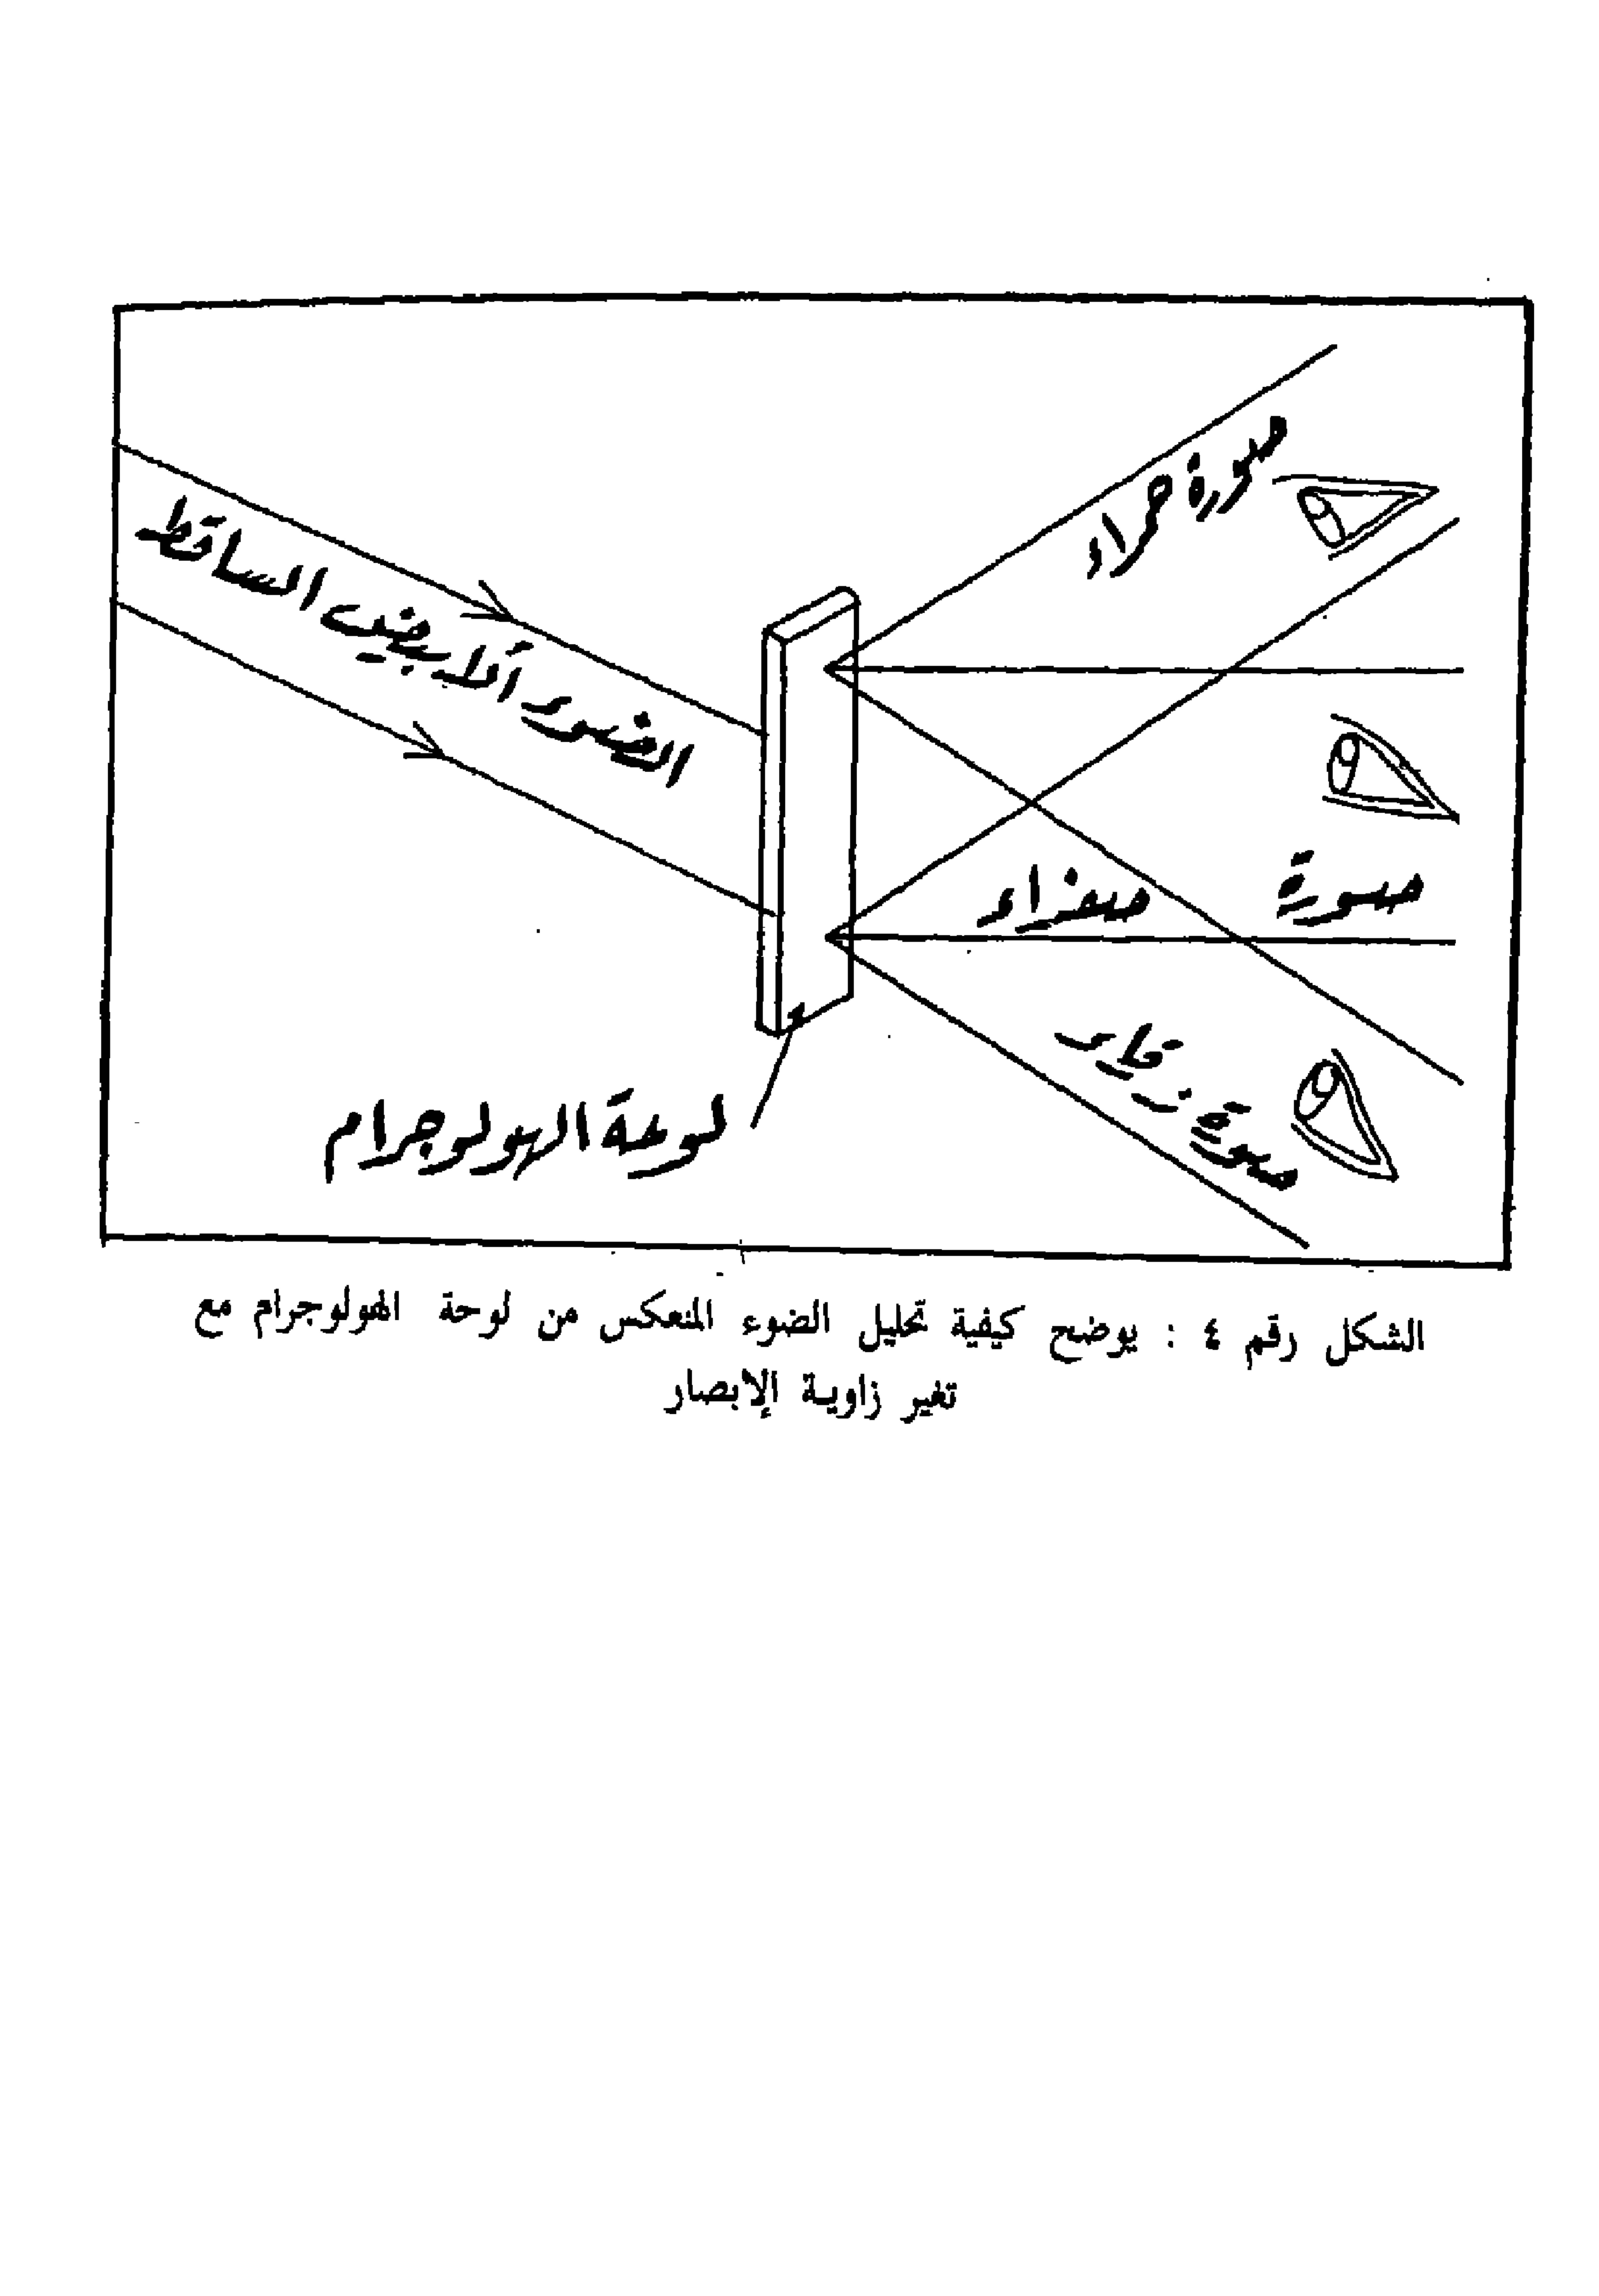 صورة حمراء
الضوء الأبيض الساقط
صورة
صفراء
صورة زرقاء
لوحة الهولوجرام
الشكل رقم ٤ : يوضح كيفية تحليل الضوء المنعكس من لوحة الهولوجرام مع
تغير زاوية الإبصار